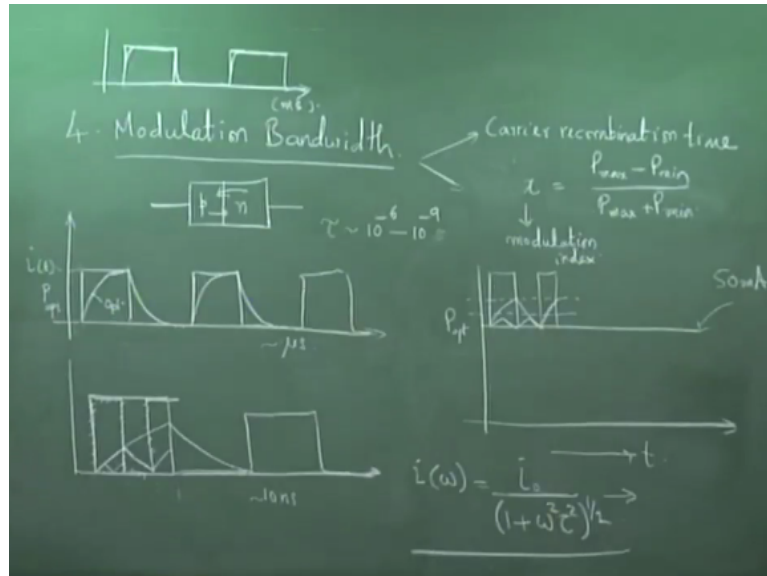 (ms).
4. Modulation Bandwidth.
Carrier recombination time
x = (Pmax − Pmin) / (Pmax + Pmin)
↓
modulation index
p n
τ ~ 10⁻⁶ – 10⁻⁹ s
i(t)
Popt
opt.
~ μs
Popt
50mA
→ t
~10ns
i(ω) = i₀ / (1 + ω²τ²)^1/2 →